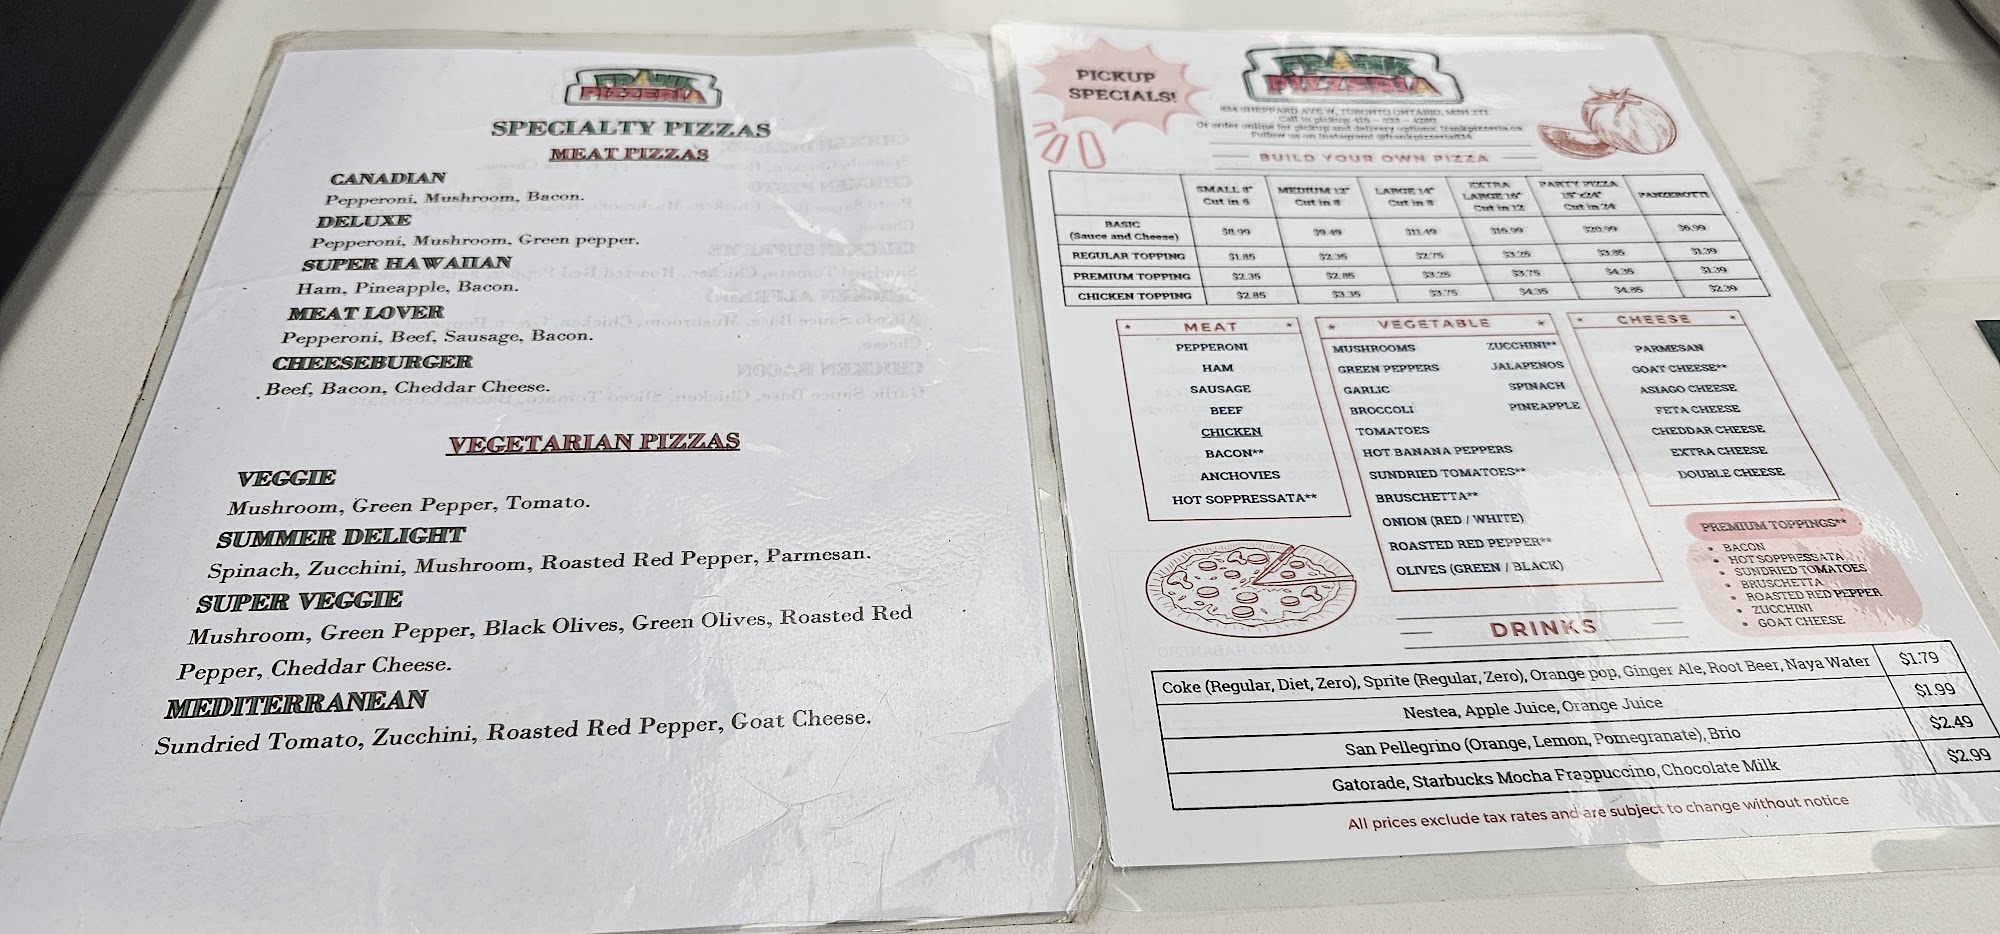 FRANK
PIZZERIA
SPECIALTY PIZZAS
MEAT PIZZAS
CANADIAN
Pepperoni, Mushroom, Bacon.
DELUXE
Pepperoni, Mushroom, Green pepper.
SUPER HAWAIIAN
Ham, Pineapple, Bacon.
MEAT LOVER
Pepperoni, Beef, Sausage, Bacon.
CHEESEBURGER
Beef, Bacon, Cheddar Cheese.
VEGETARIAN PIZZAS
VEGGIE
Mushroom, Green Pepper, Tomato.
SUMMER DELIGHT
Spinach, Zucchini, Mushroom, Roasted Red Pepper, Parmesan.
SUPER VEGGIE
Mushroom, Green Pepper, Black Olives, Green Olives, Roasted Red
Pepper, Cheddar Cheese.
MEDITERRANEAN
Sundried Tomato, Zucchini, Roasted Red Pepper, Goat Cheese.
PICKUP
SPECIALS!
FRANK
PIZZERIA
SHEPPARD AVE W, TORONTO ONTARIO,
Call to pickup:
Or order online for pickup and delivery options: frankpizzeria.ca
Follow us on Instagram @frankpizzeria834
BUILD YOUR OWN PIZZA
SMALL 8" Cut in 6 MEDIUM 12" Cut in 8 LARGE 14" Cut in 8 EXTRA LARGE 16" Cut in 12 PARTY PIZZA Cut in 24 PANZEROTTI
BASIC (Sauce and Cheese) $8.99 $9.49 $11.49 $16.99 $20.99 $6.99
REGULAR TOPPING $1.85 $2.35 $2.75 $3.25 $3.85 $1.39
PREMIUM TOPPING $2.35 $2.85 $3.25 $3.75 $4.35 $1.39
CHICKEN TOPPING $2.85 $3.35 $3.75 $4.35 $4.85 $2.39
MEAT
PEPPERONI
HAM
SAUSAGE
BEEF
CHICKEN
BACON**
ANCHOVIES
HOT SOPPRESSATA**
VEGETABLE
MUSHROOMS
GREEN PEPPERS
GARLIC
BROCCOLI
TOMATOES
HOT BANANA PEPPERS
SUNDRIED TOMATOES**
BRUSCHETTA**
ONION (RED / WHITE)
ROASTED RED PEPPER**
OLIVES (GREEN / BLACK)
ZUCCHINI**
JALAPENOS
SPINACH
PINEAPPLE
CHEESE
PARMESAN
GOAT CHEESE**
ASIAGO CHEESE
FETA CHEESE
CHEDDAR CHEESE
EXTRA CHEESE
DOUBLE CHEESE
PREMIUM TOPPINGS**
• BACON
• HOT SOPPRESSATA
• SUNDRIED TOMATOES
• BRUSCHETTA
• ROASTED RED PEPPER
• ZUCCHINI
• GOAT CHEESE
DRINKS
Coke (Regular, Diet, Zero), Sprite (Regular, Zero), Orange pop, Ginger Ale, Root Beer, Naya Water $1.79
Nestea, Apple Juice, Orange Juice $1.99
San Pellegrino (Orange, Lemon, Pomegranate), Brio $2.49
Gatorade, Starbucks Mocha Frappuccino, Chocolate Milk $2.99
All prices exclude tax rates and are subject to change without notice